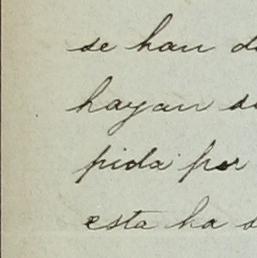 se han
hayan
pida por
esta ha